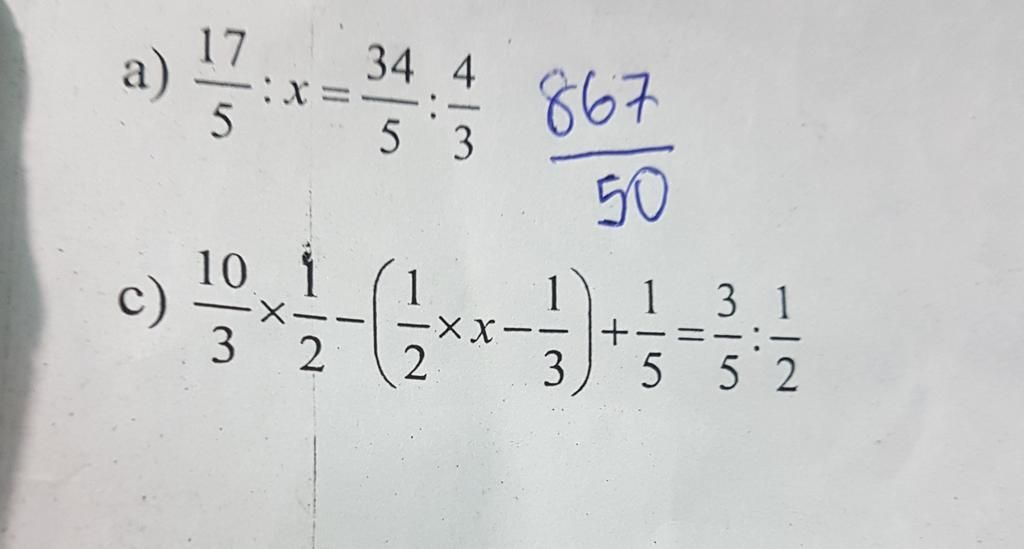 a) 17/5 : x = 34/5 : 4/3 867/50
c) 10/3 × 1/2 − (1/2 × x − 1/3) + 1/5 = 3/5 : 1/2